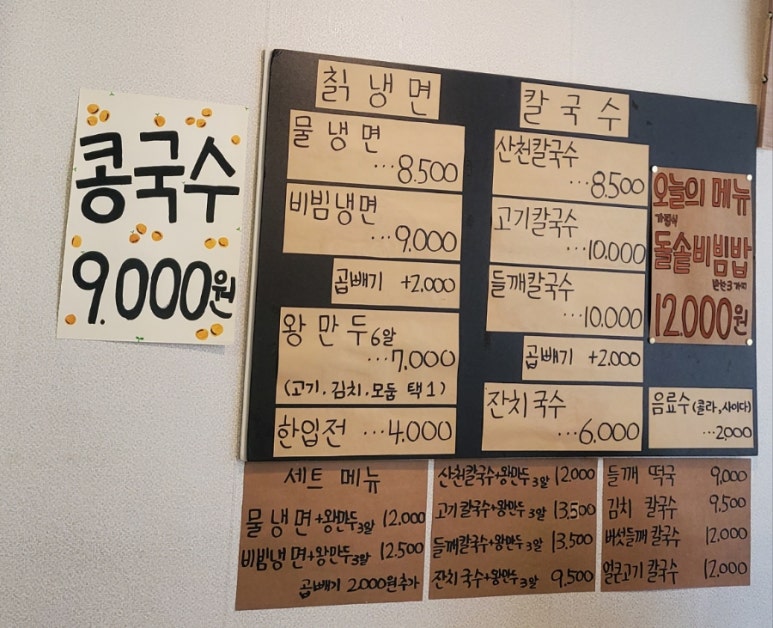 콩국수
9.000원
칡냉면
물냉면
...8.500
비빔냉면
...9.000
곱빼기 +2.000
왕만두 6알
...7.000
(고기.김치.모둠 택1)
한입전 ...4.000
칼국수
산천칼국수
...8.500
고기칼국수
...10.000
들깨칼국수
...10.000
곱빼기 +2.000
잔치국수
...6.000
오늘의 메뉴
돌솥비빔밥
반찬3가지
12.000원
음료수(콜라,사이다)
...2.000
세트 메뉴
물냉면+왕만두3알 12.000
비빔냉면+왕만두3알 12.500
곱빼기 2.000원추가
산천칼국수+왕만두3알 12.000
고기칼국수+왕만두3알 13.500
들깨칼국수+왕만두3알 13,500
잔치국수+왕만두3알 9.500
들깨 떡국 9,000
김치 칼국수 9.500
버섯들깨 칼국수 12.000
얼큰고기 칼국수 12.000